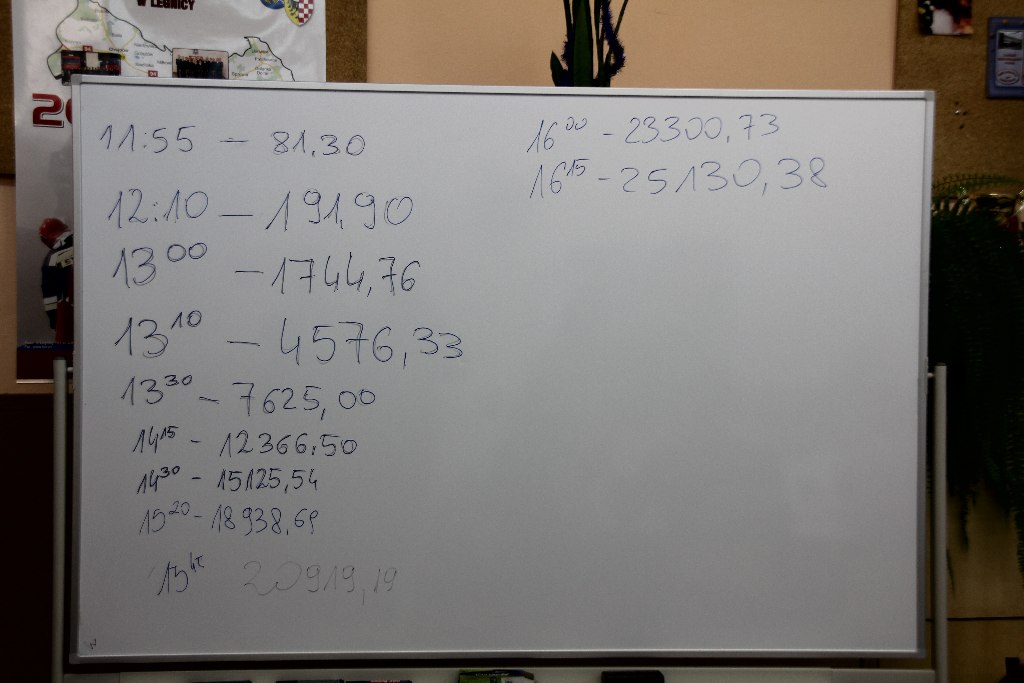 W LEGNICY
11:55 – 81.30
12:10 – 191,90
13⁰⁰ – 1744,76
13¹⁰ – 4576,33
13³⁰ – 7625,00
14¹⁵ – 12366.50
14³⁰ – 15125,54
15²⁰ – 18938,69
15⁴⁵ 20919,19
16⁰⁰ – 23300,73
16¹⁵ – 25130,38